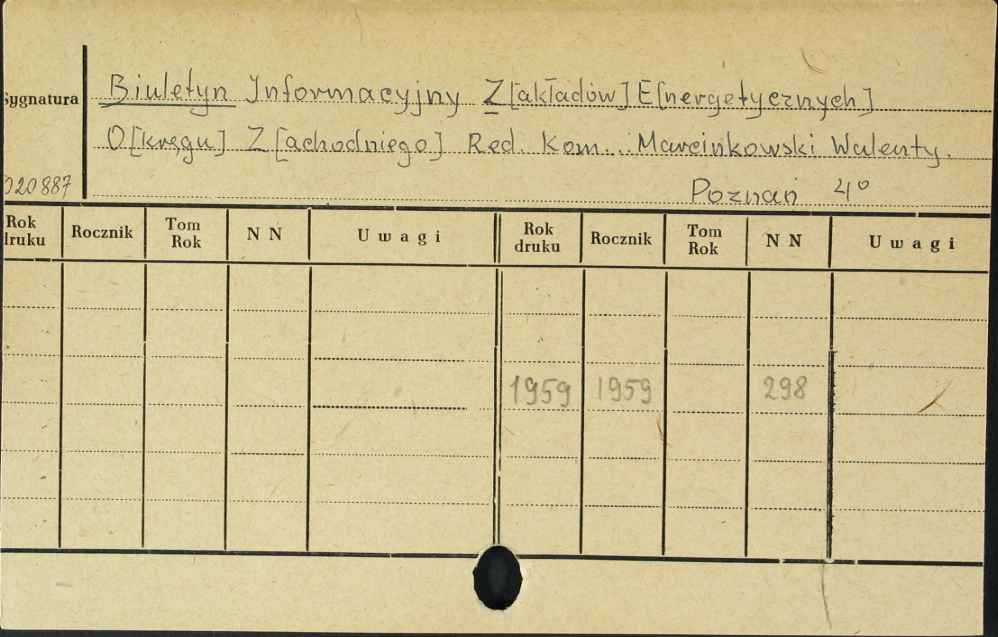 Sygnatura Biuletyn Informacyjny Z[akładów] E[nergetycznych]
O[kręgu] Z[achodniego] Red. Kom. Marcinkowski Walenty.
020887 Poznań 4°
Rok druku Rocznik Tom Rok N N Uwagi Rok druku Rocznik Tom Rok N N Uwagi
1959 1959 298